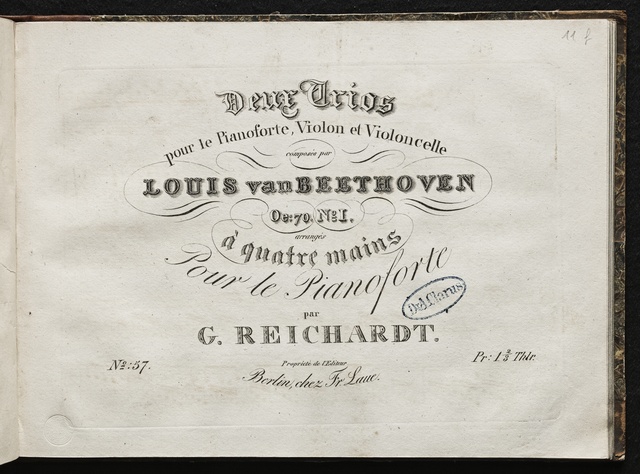 11 f
Deux Trios
pour le Pianoforte, Violon et Violoncelle
composés par
LOUIS van BEETHOVEN
Oe: 70. No I.
arrangés
à quatre mains
Pour le Pianoforte
par
G. REICHARDT.
Ord. Clarus
No: 57.
Pr: 1 2/3 Thlr.
Propriété de l'Editeur
Berlin, chez Fr. Laue.